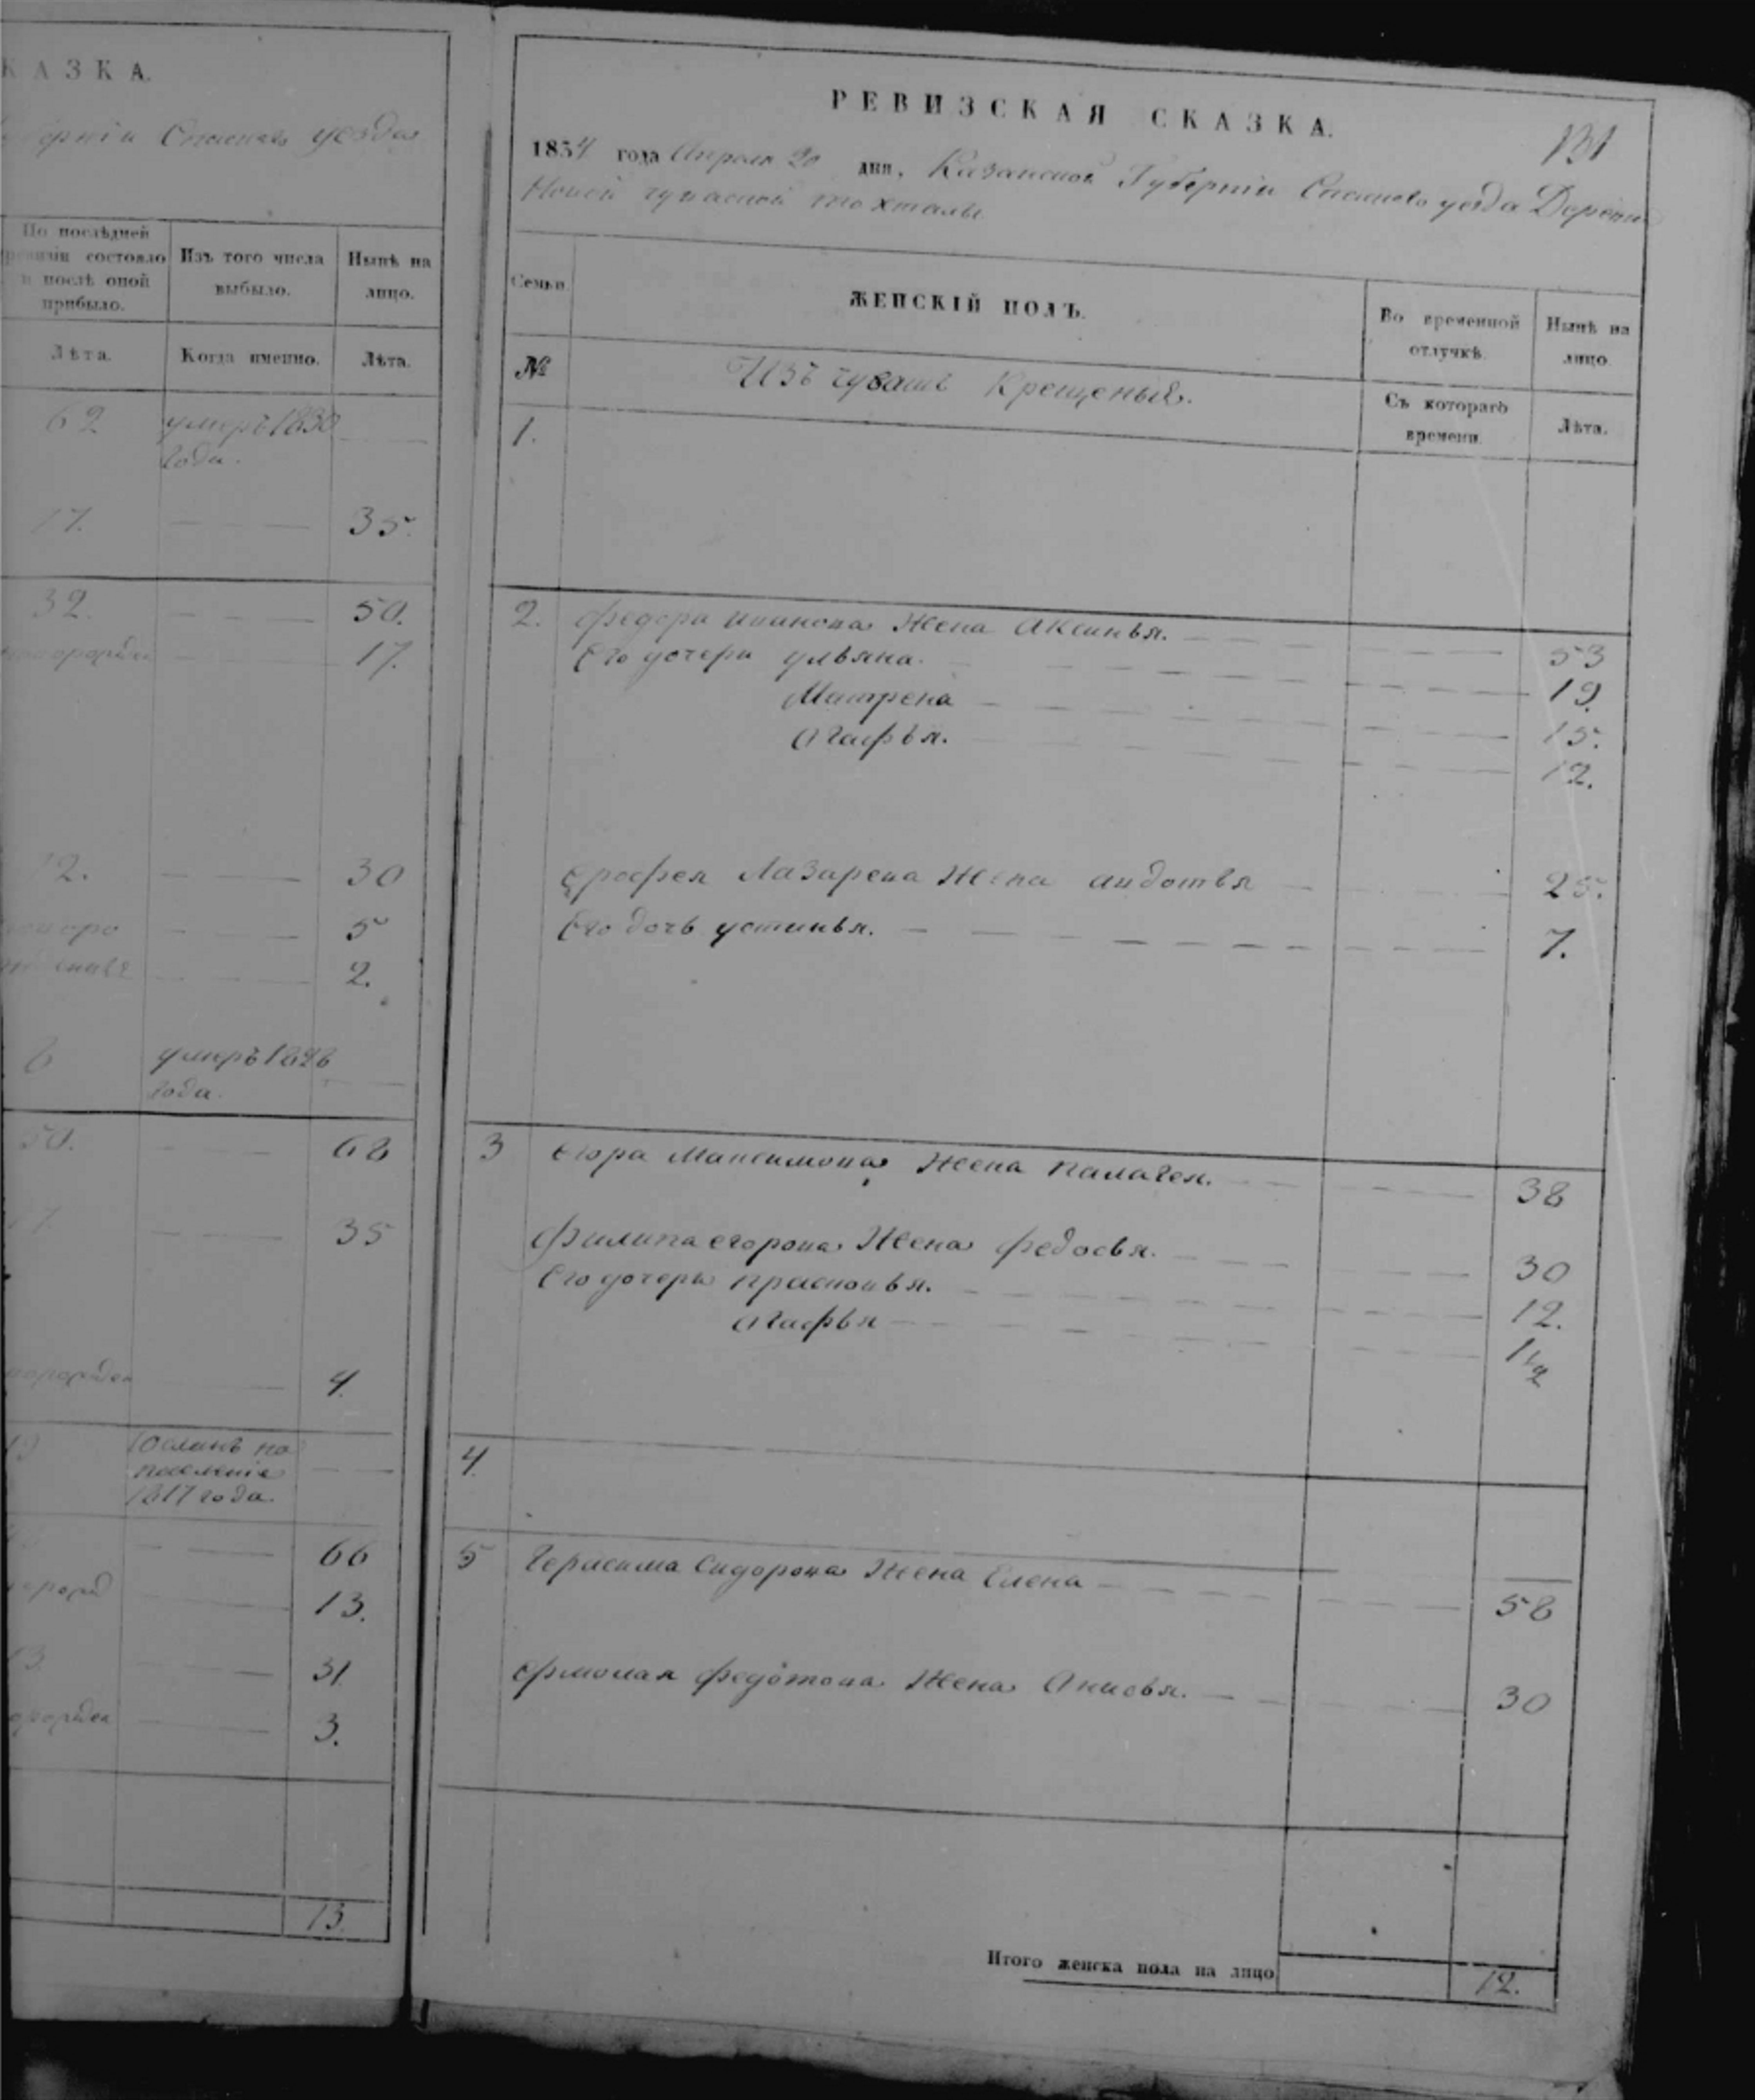 КАЗКА.
Спаскаго уезда
По последней ревизіи состояло и послѣ оной прибыло.
Изъ того числа выбыло.
Нынѣ на лицо.
Лѣта.
Когда именно.
Лѣта.
62 умеръ 1850
года.
17. 35.
32. 50.
17.
12. 30
5
2.
умеръ 1848
года.
50. 68
17. 35
4.
19
поселеніе
1817 года.
66
13.
13. 31
3.
13.
РЕВИЗСКАЯ СКАЗКА.
131
1854 года Апреля 20 дня, Казанской Губерніи Спаскаго уезда Деревни
Новой чуваской
Семьи
ЖЕНСКІЙ ПОЛЪ.
Во временной отлучкѣ.
Нынѣ на лицо.
№
Изъ чувашъ Крещеныя.
Съ котораго времени.
Лѣта.
1.
2. федора иванова Жена Аксинья. 53
Его дочери ульяна. 19.
Матрена 15.
Агафья. 12.
Ерофея Лазарева Жена авдотья 25.
Его дочь устинья. 7.
3 егора Максимова Жена палагея. 38
Филипа егорова Жена федосья. 30
Его дочери прасковья. 12.
Агафья 1½
4.
5 Герасима Сидорова Жена Елена 58
ермолая федотова Жена Анисья. 30
Итого женска пола на лицо 12.